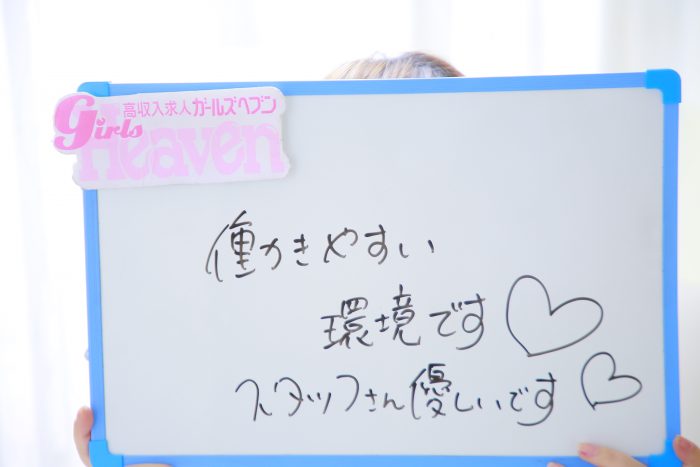 高収入求人ガールズヘブン
Girls
Heaven
働かきやすい
環境です♡
スタッフさん優しいです♡